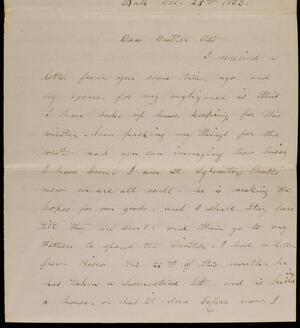 Bath Oct. 25th 1863.
Dear Brother
I received a
letter from you some time ago and
my excuse for my negligence is this
I have broke up house keeping for this
winter. been packing my things for the
west. and you can immagine how buisy
I have been. I am at Sylvesters
now we are all well. he is making the
boxes for our goods. and I shall stay here
till they are sent. and then go to my
Fathers to spend the winter. I had a letter
from the 22nd of this month. he
has taken a homestead lot. and is building
a house. or has it done before now. I